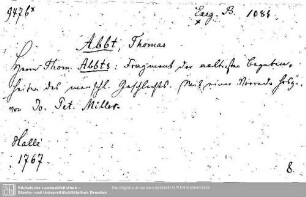 9476 x
Exeg. B. 1088
Abbt, Thomas
Herrn Thom. Abbts: Fragment der aeltesten Begeben-
heiten des menschl. Geschlechts. Mit einer Vorrede hrsg.
von Jo. Pet. Miller.
Halle
1767
8.
Sächsische Landesbibliothek -
Staats- und Universitätsbibliothek Dresden